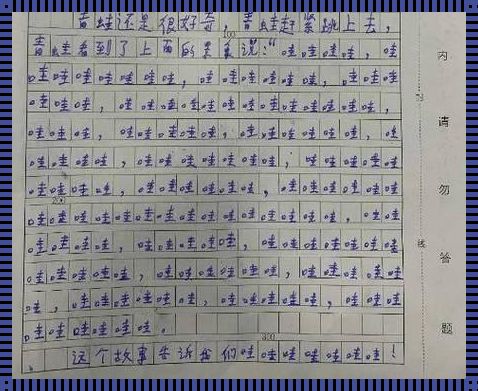 青蛙还是很好奇，青蛙赶紧跳上去，
100
青蛙看到了上面的景象说：“哇哇哇哇，哇
哇哇哇哇哇哇哇，哇哇哇哇哇哇，哇哇哇
哇哇哇，哇哇哇哇哇哇哇哇哇哇哇哇，
哇哇哇，哇哇哇哇哇，哇哇哇哇哇哇，哇
哇哇哇哇，哇哇哇哇哇哇哇，哇哇哇哇哇
哇哇哇哇，哇哇哇哇哇哇，哇哇哇哇哇哇
200
哇哇哇哇哇哇哇哇哇哇哇哇哇哇，哇哇
哇哇哇哇，哇哇哇哇哇，哇哇哇哇哇哇哇
哇哇哇哇哇，哇哇哇哇哇哇，哇哇哇哇哇
哇，哇哇哇哇哇哇，哇哇哇哇哇，哇哇哇
哇哇哇哇哇哇。
300
这个故事告诉我们哇哇哇哇哇哇哇！
内
请
勿
答
题
线